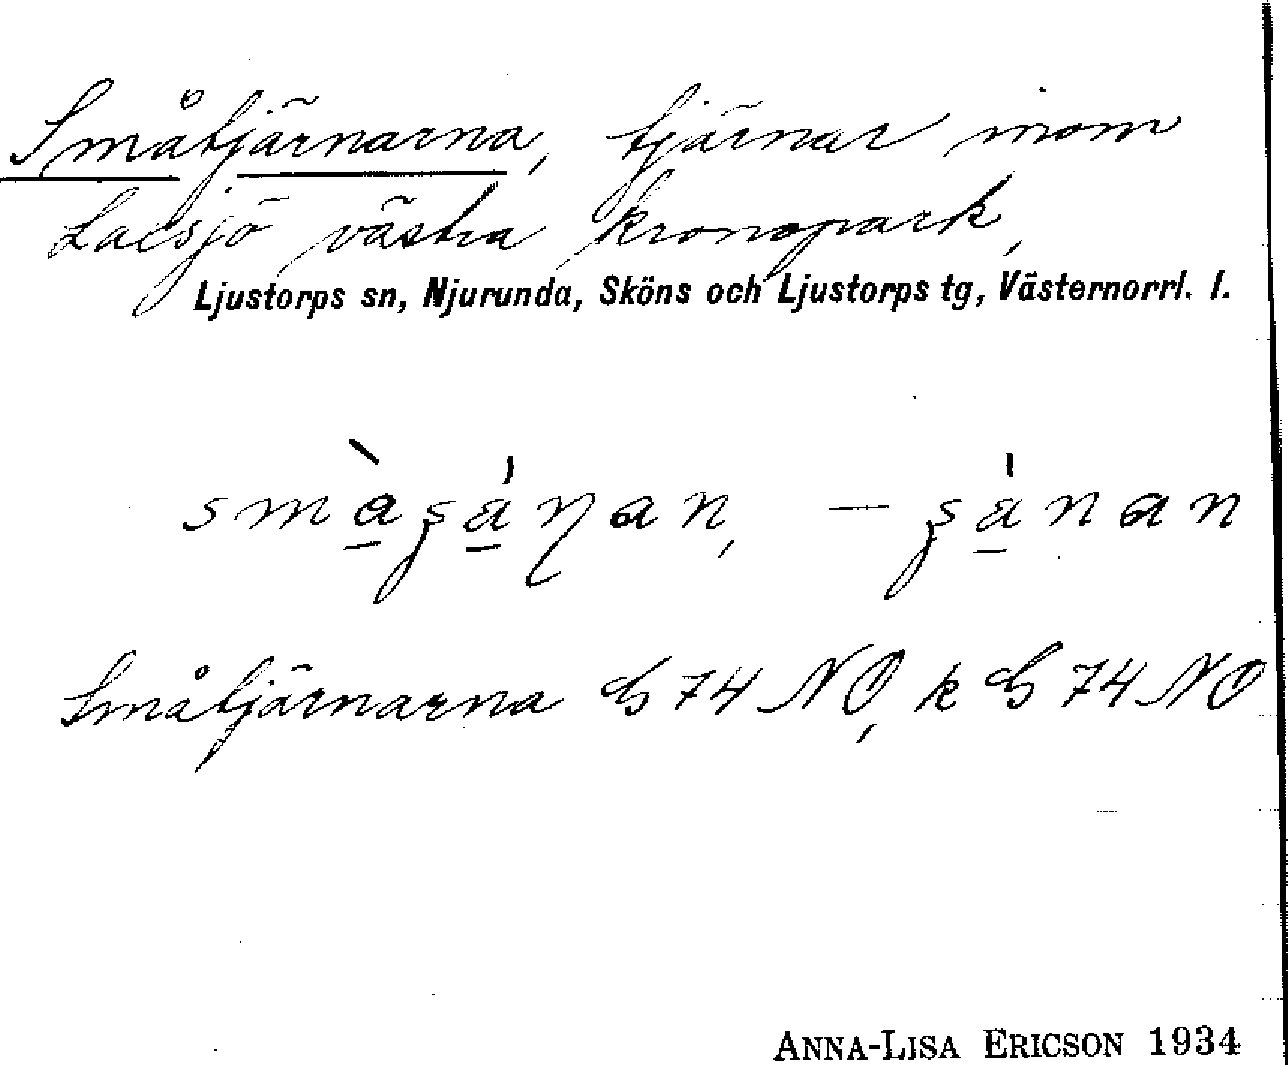 Småtjärnarna, tjärnar inom
Laxsjö västra kronopark,
Ljustorps sn, Njurunda, Sköns och Ljustorps tg, Västernorrl. l.
Småtjärnarna G 74 NO, k G 74 NO
ANNA-LISA ERICSON 1934